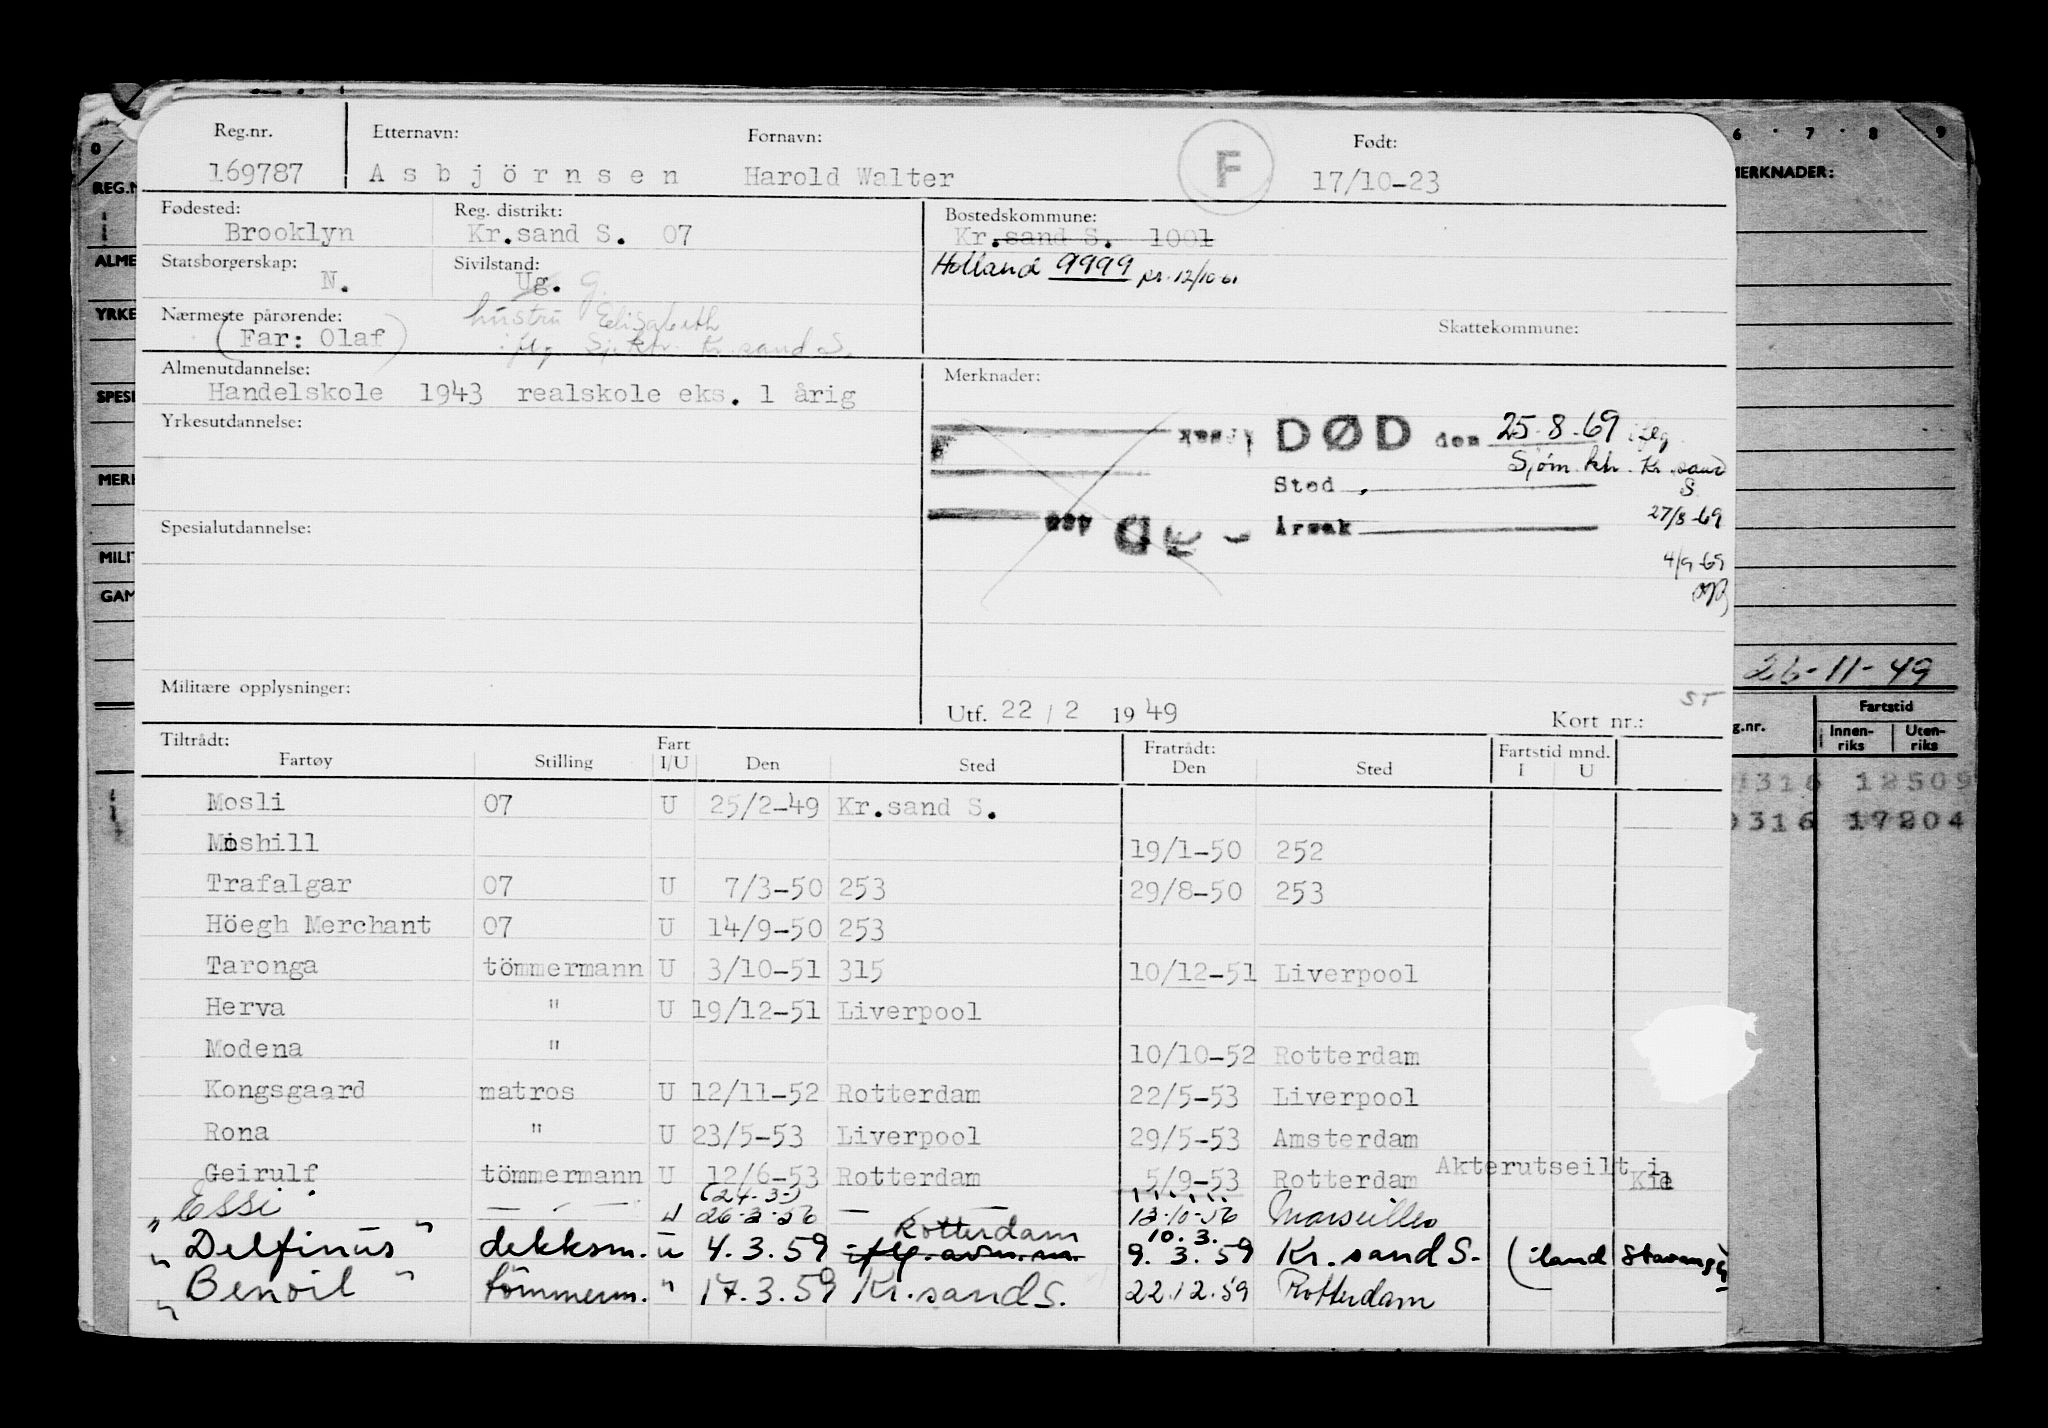 Reg.nr. Etternavn: Fornavn: F Født:
169787 Asbjörnsen Harold Walter 17/10-23
Fødested: Reg. distrikt: Bostedskommune:
Brooklyn Kr.sand S. 07 Kr.sand S. 1001
Statsborgerskap: Sivilstand: Holland 9999
N. Ug. G.
Nærmeste pårørende: hustru Elisabeth Skattekommune:
(Far: Olaf) iflg Sj.ktr. Kr.sand S.
Almenutdannelse: Merknader:
Handelskole 1943 realskole eks. 1 årig
Yrkesutdannelse: DØD den 25-8-69 iflg
Sjøm.ktr. Kr.sand
Sted S.
27/8-69
Spesialutdannelse: Årsak
4/9-69
Militære opplysninger:
ST
Utf. 22/2 1949 Kort nr.:
Tiltrådt: Fart Fratrådt: Fartstid mnd.
Fartøy Stilling I/U Den Sted Den Sted I U
Mosli 07 U 25/2-49 Kr.sand S.
Moshill 19/1-50 252
Trafalgar 07 U 7/3-50 253 29/8-50 253
Höegh Merchant 07 U 14/9-50 253
Taronga tömmermann U 3/10-51 315 10/12-51 Liverpool
Herva " U 19/12-51 Liverpool
Modena " 10/10-52 Rotterdam
Kongsgaard matros U 12/11-52 Rotterdam 22/5-53 Liverpool
Rona " U 23/5-53 Liverpool 29/5-53 Amsterdam
Geirulf tömmermann U 12/6-53 Rotterdam 5/9-53 Rotterdam Akterutseilt i Kiel
(24-3-)
"Essi" — " — U 26-3-56 — 13-10-56 Marseilles
Rotterdam 10.3.
"Delfinus" dekksm. U 4.3.59 iflg. 9.3.59 Kr.sand S. (iland Stavanger)
"Benoil" tömmerm. " 17.3.59 Kr.sand S. 22.12.59 Rotterdam
0 6 7 8 9
REG.N
MERKNADER:
ALME
YRKE
SPESI
MERK
MILIT
GAM
26-11-49
g.nr. Fartstid
Innen-riks Uten-riks
0316 12509
0316 17204